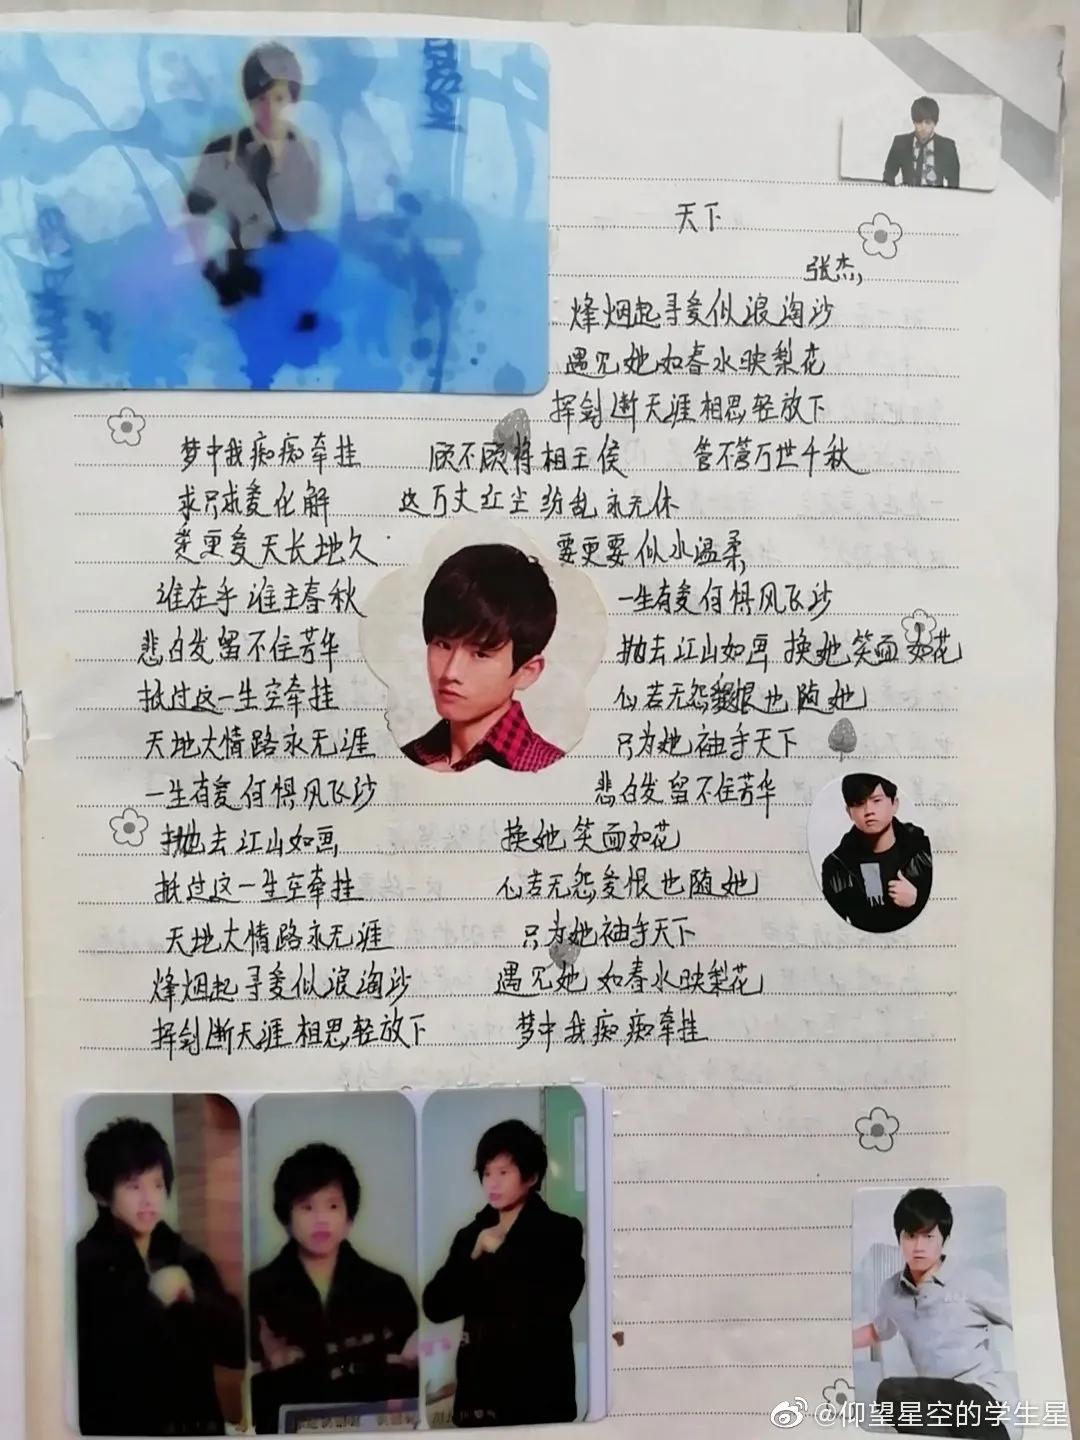 天下
张杰,
烽烟起寻爱似浪淘沙
遇见她如春水映梨花
挥剑断天涯相思轻放下
梦中我痴痴牵挂 顾不顾将相王侯 管不管万世千秋
求只求爱化解 这万丈红尘纷乱永无休
爱更爱天长地久 要更要似水温柔
谁在乎谁主春秋 一生有爱何惧风飞沙
悲白发留不住芳华 抛去江山如画 换她笑面如花
抵过这一生空牵挂 心若无怨爱恨也随她
天地大情路永无涯 只为她袖手天下
一生有爱何惧风飞沙 悲白发留不住芳华
抛去江山如画 换她笑面如花
抵过这一生空牵挂 心若无怨爱恨也随她
天地大情路永无涯 只为她袖手天下
烽烟起寻爱似浪淘沙 遇见她如春水映梨花
挥剑断天涯相思轻放下 梦中我痴痴牵挂
@仰望星空的学生星